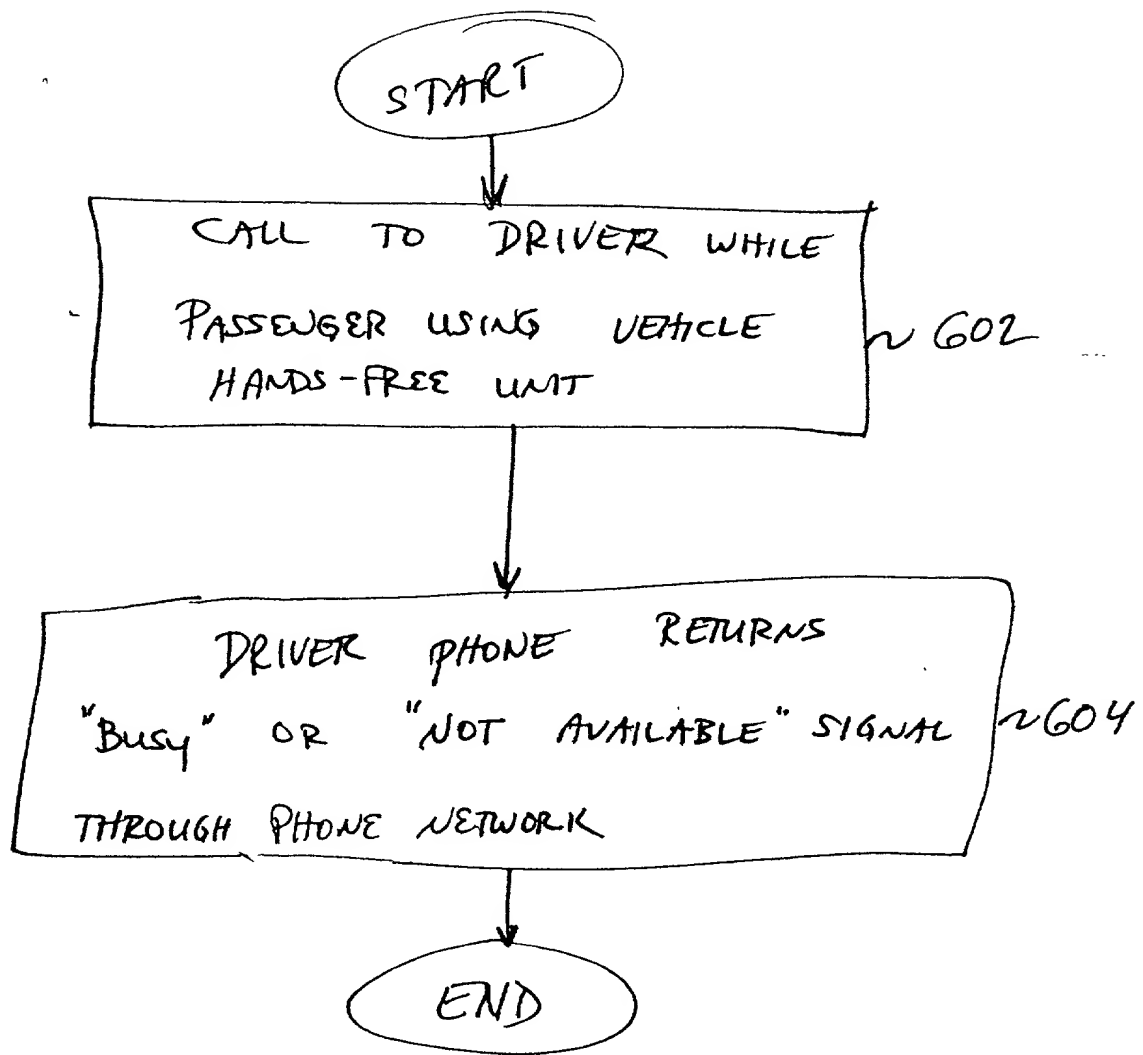 START
CALL TO DRIVER WHILE
PASSENGER USING VEHICLE
HANDS-FREE UNIT
602
DRIVER PHONE RETURNS
"BUSY" OR "NOT AVAILABLE" SIGNAL
THROUGH PHONE NETWORK
604
END